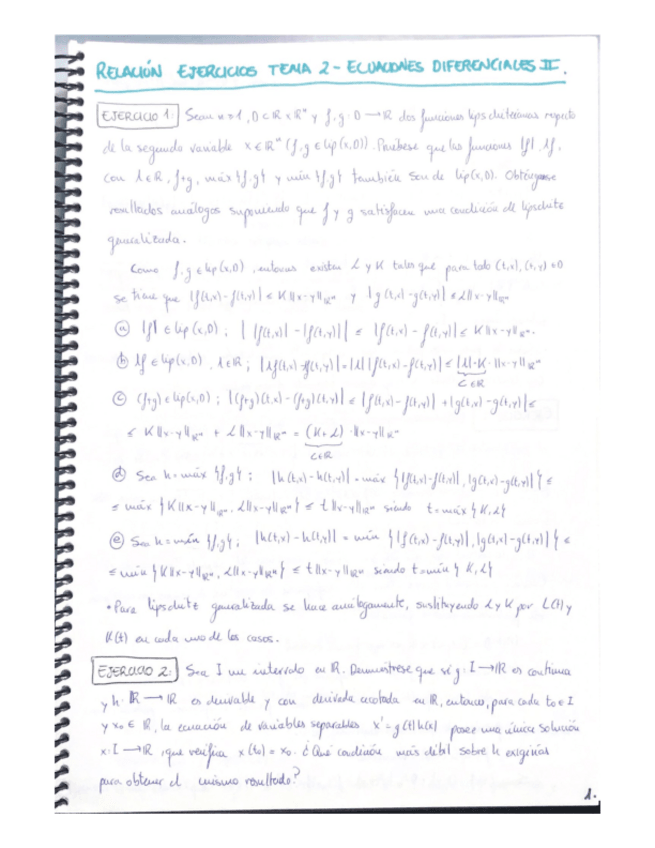 RELACIÓN EJERCICIOS TEMA 2 - ECUACIONES DIFERENCIALES II.
EJERCICIO 1: Sean n≥1, D⊂ℝ×ℝⁿ y f,g: D→ℝ dos funciones lipschitzianas respecto
de la segunda variable x∈ℝⁿ (f,g∈Lip(x,D)). Pruébese que las funciones |f|, λf,
con λ∈ℝ, f+g, máx{f,g} y mín{f,g} también son de Lip(x,D). Obténganse
resultados análogos suponiendo que f y g satisfacen una condición de lipschitz
generalizada.
Como f,g∈Lip(x,D), entonces existen L y K tales que para todo (t,x),(t,y)∈D
se tiene que |f(t,x)-f(t,y)| ≤ K||x-y||ℝⁿ y |g(t,x)-g(t,y)| ≤ L||x-y||ℝⁿ
ⓐ |f|∈Lip(x,D); ||f(t,x)|-|f(t,y)|| ≤ |f(t,x)-f(t,y)| ≤ K||x-y||ℝⁿ.
ⓑ λf∈Lip(x,D), λ∈ℝ; |λf(t,x)-λf(t,y)| = |λ||f(t,x)-f(t,y)| ≤ |λ|·K·||x-y||ℝⁿ
C∈ℝ
ⓒ (f+g)∈Lip(x,D); |(f+g)(t,x)-(f+g)(t,y)| ≤ |f(t,x)-f(t,y)| + |g(t,x)-g(t,y)| ≤
≤ K||x-y||ℝⁿ + L||x-y||ℝⁿ = (K+L)·||x-y||ℝⁿ
C∈ℝ
ⓓ Sea h=máx{f,g}; |h(t,x)-h(t,y)| = máx{|f(t,x)-f(t,y)|, |g(t,x)-g(t,y)|} ≤
≤ máx{K||x-y||ℝⁿ, L||x-y||ℝⁿ} ≤ t||x-y||ℝⁿ siendo t=máx{K,L}
ⓔ Sea h=mín{f,g}; |h(t,x)-h(t,y)| = mín{|f(t,x)-f(t,y)|, |g(t,x)-g(t,y)|} ≤
≤ mín{K||x-y||ℝⁿ, L||x-y||ℝⁿ} ≤ t||x-y||ℝⁿ siendo t=mín{K,L}
• Para lipschitz generalizada se hace análogamente, sustituyendo L y K por L(t) y
K(t) en cada uno de los casos.
EJERCICIO 2: Sea I un intervalo en ℝ. Demuéstrese que si g: I→ℝ es continua
y h: ℝ→ℝ es derivable y con derivada acotada en ℝ, entonces, para cada t₀∈I
y x₀∈ℝ, la ecuación de variables separables x'=g(t)h(x) posee una única solución
x: I→ℝ, que verifica x(t₀)=x₀. ¿Qué condición más débil sobre h exigirías
para obtener el mismo resultado?
1.